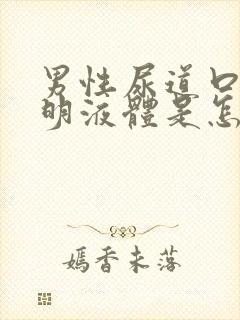 男性尿道口
明液體是怎
嫣香未落